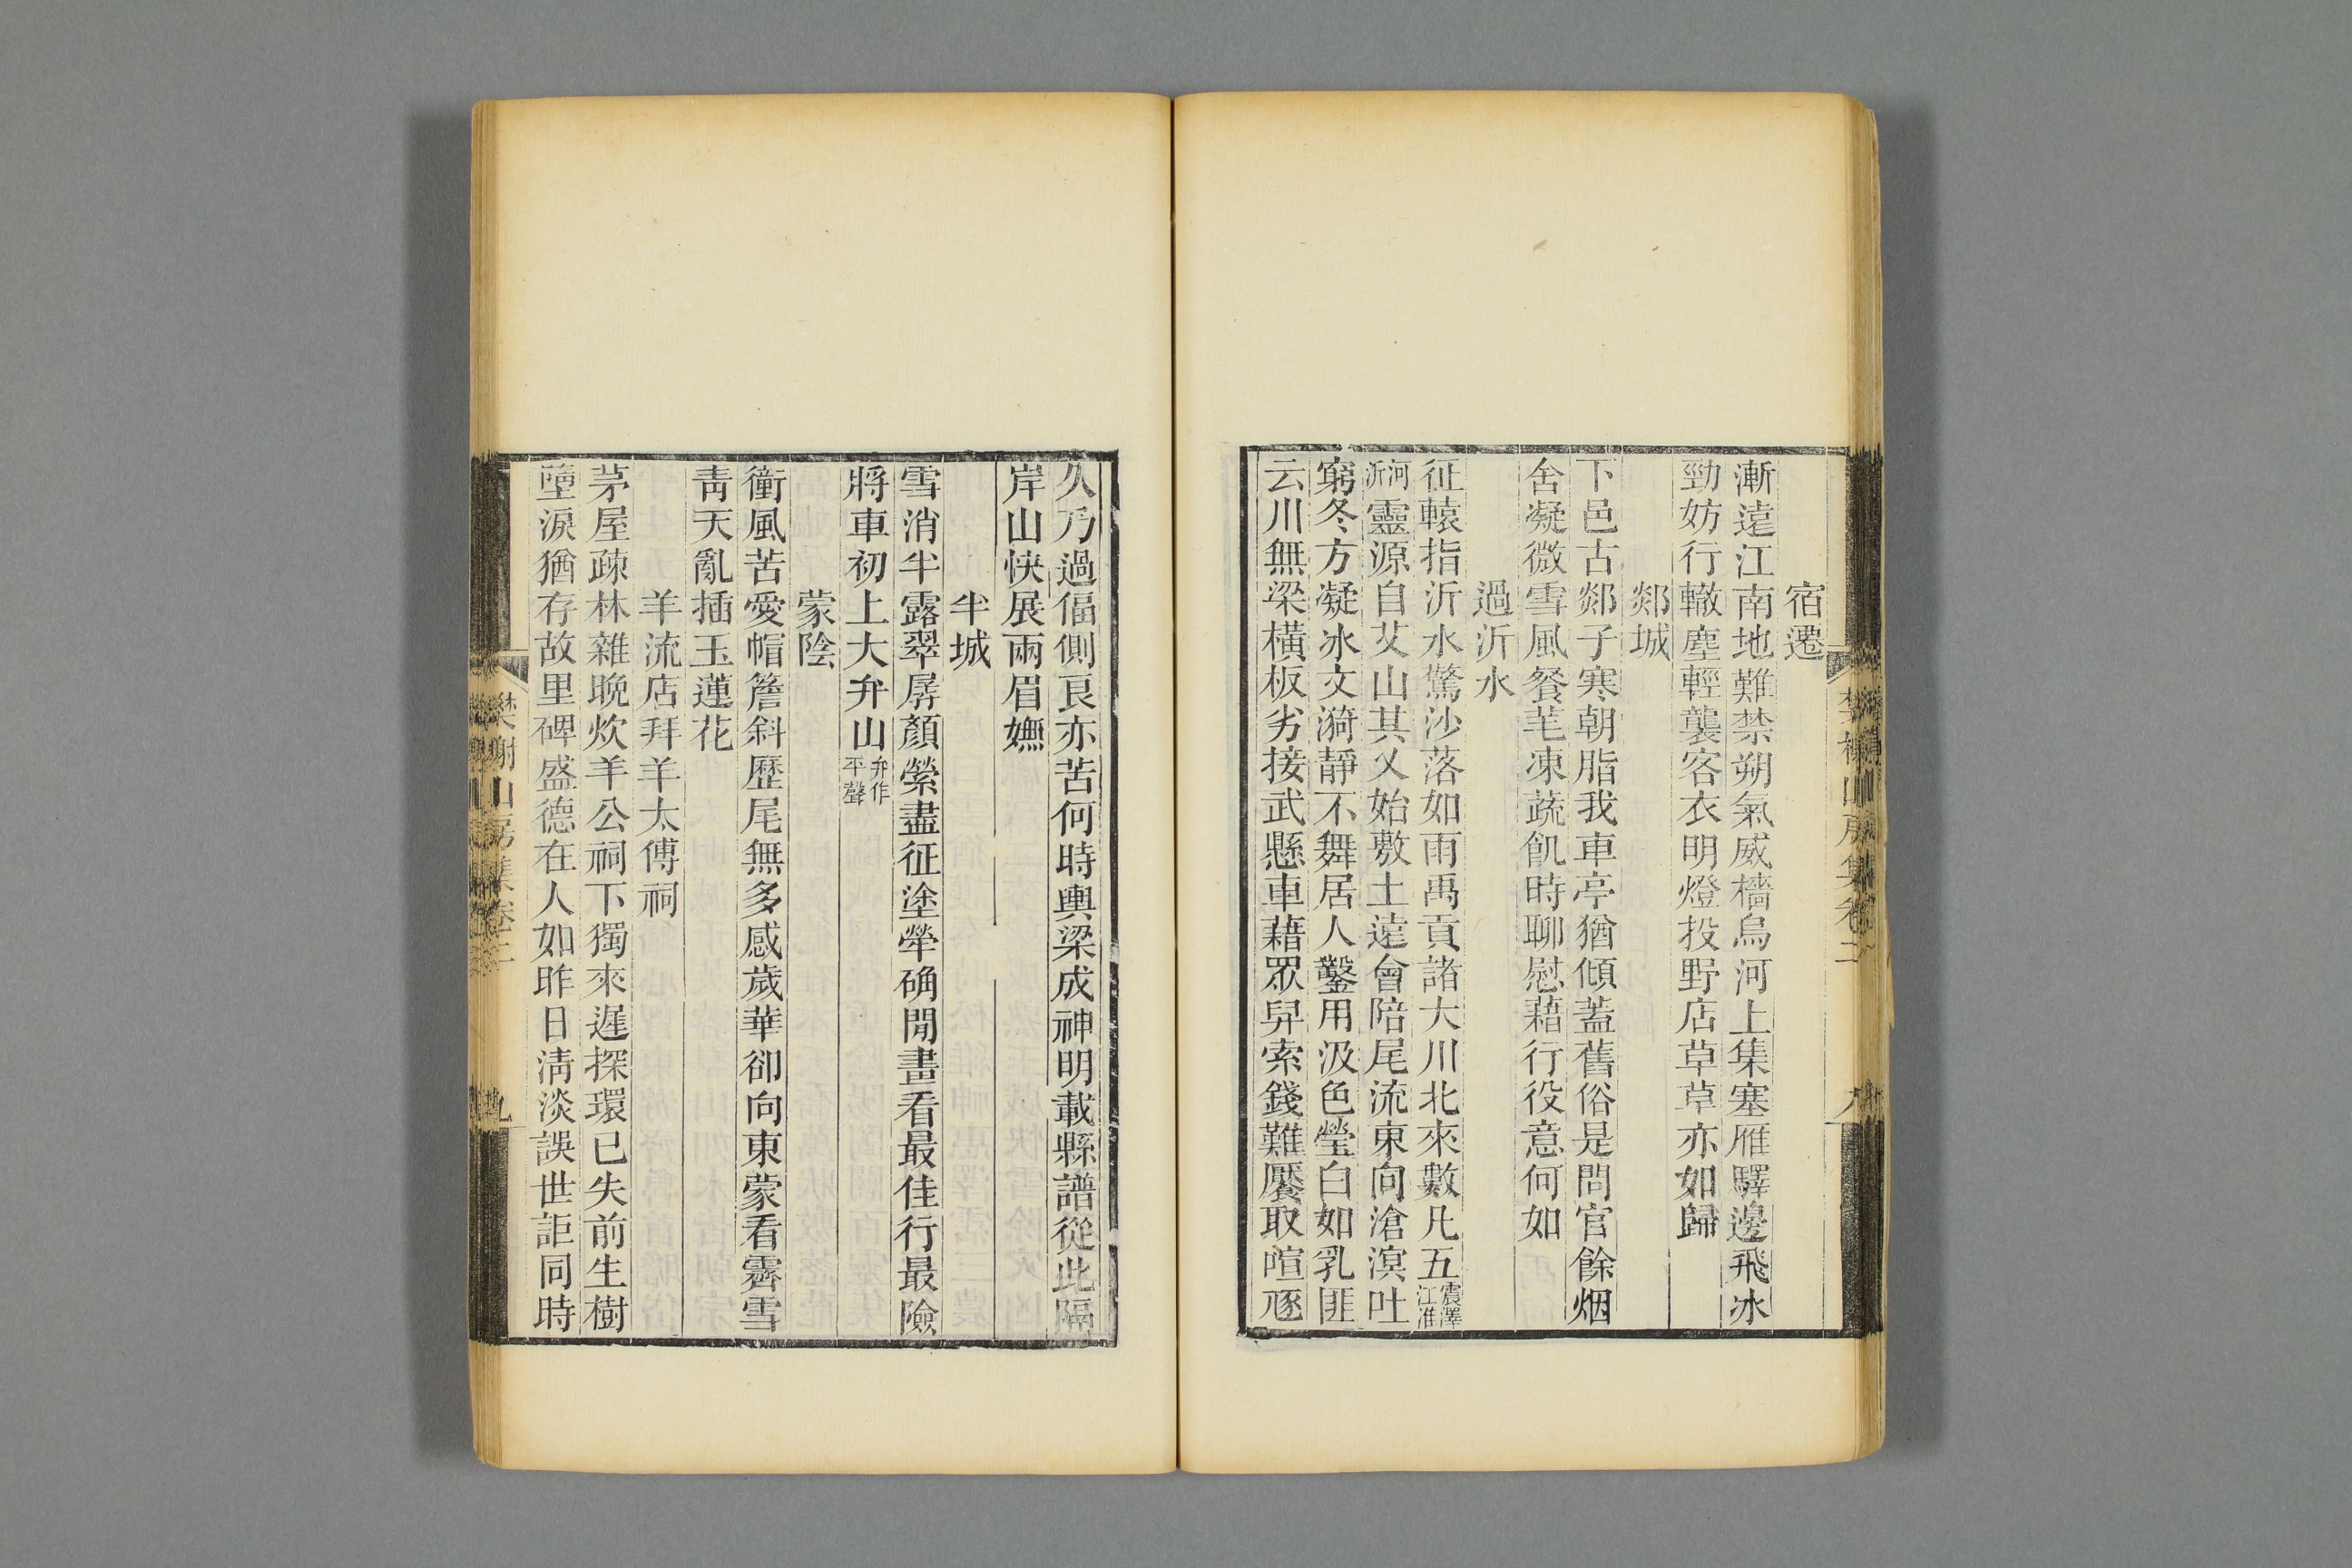 宿遷
漸遠江南地難禁朔氣威檣烏河上集塞雁驛邊飛冰
勁妨行轍塵輕襲客衣明燈投野店草草亦如歸
郯城
下邑古郯子寒朝脂我車亭猶傾蓋舊俗是問官餘烟
舍凝微雪風餐芼凍蔬飢時聊慰藉行役意何如
過沂水
征轅指沂水驚沙落如雨禹貢諸大川北來數凡五震澤江淮
河沂靈源自艾山其乂始敷土遠會陪尾流東向滄溟吐
窮冬方凝冰文漪靜不舞居人鑿用汲色瑩白如乳匪
云川無梁橫板劣接武懸車藉眾舁索錢難饜取喧豗
樊榭山房集卷二
久乃過偪側良亦苦何時輿梁成神明載縣譜從此隔
岸山快展兩眉嫵
半城
雪消半露翠孱顏縈盡征塗犖确閒畫看最佳行最險
將車初上大弁山弁作平聲
蒙陰
衝風苦愛帽簷斜歷尾無多感歲華卻向東蒙看霽雪
靑天亂插玉蓮花
羊流店拜羊太傅祠
茅屋疎林雜晚炊羊公祠下獨來遲探環已失前生樹
墮淚猶存故里碑盛德在人如昨日淸淡誤世詎同時
樊榭山房集卷二
九